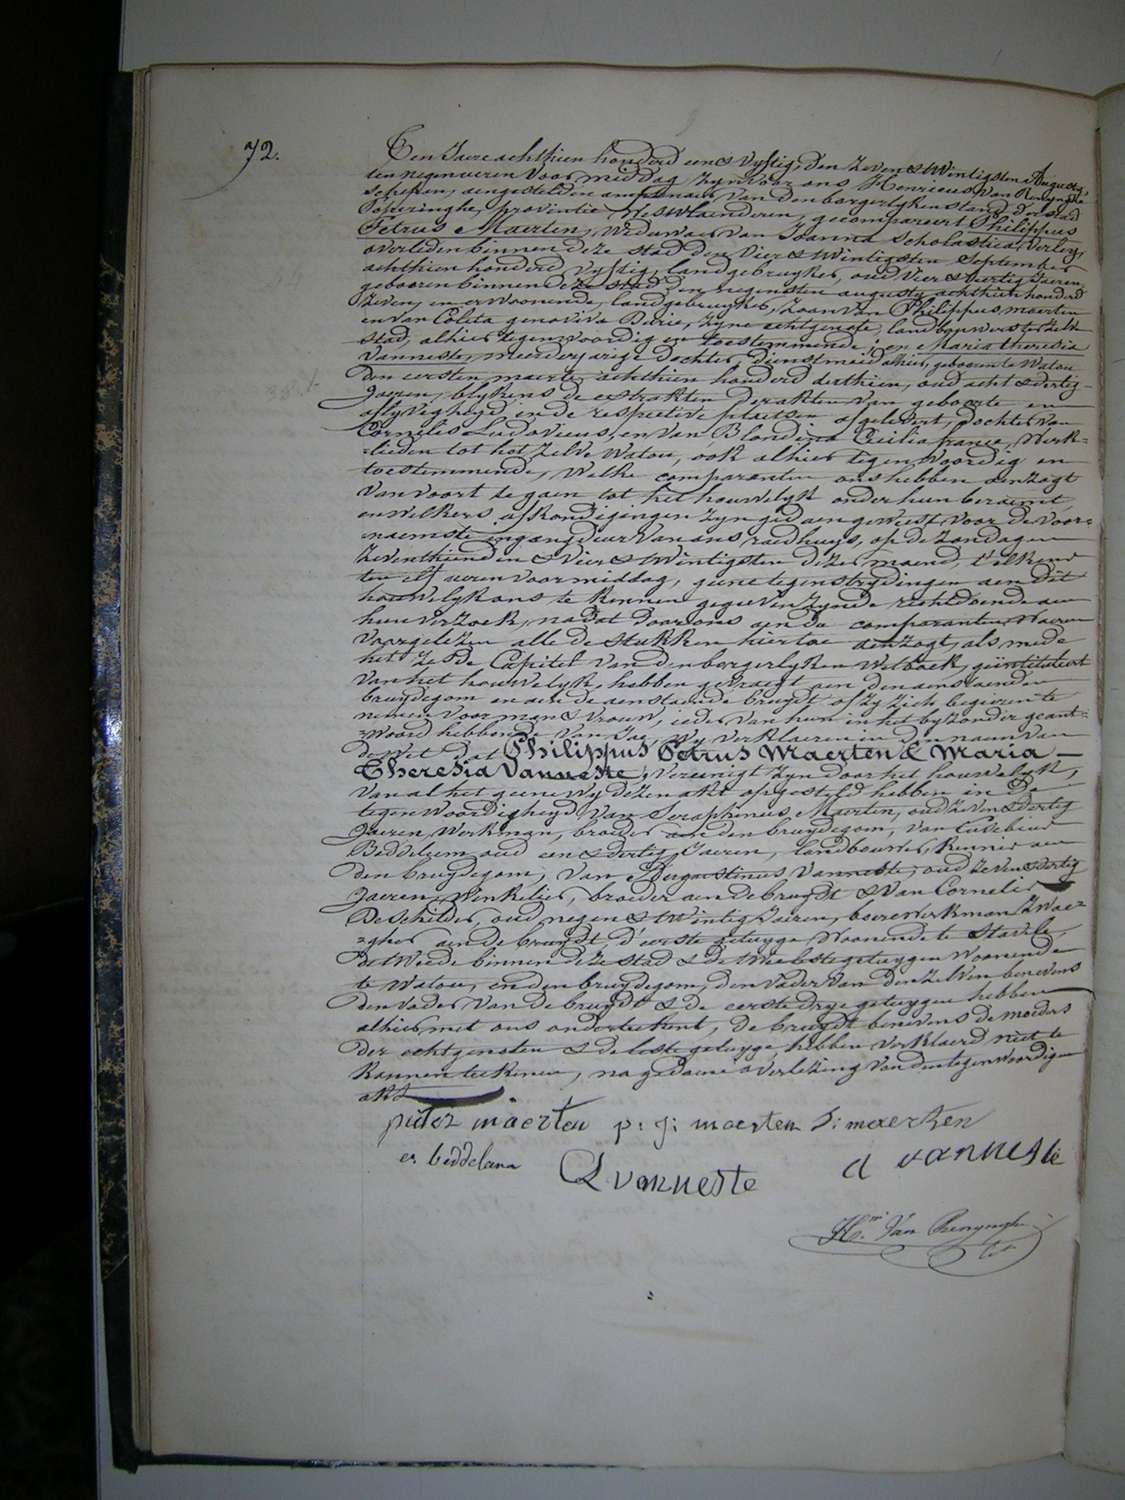 72.
Ten Jaere achthien honderd een & vyftig, den zeven & twintigsten Augusty,
ten negen ueren voor middag, zyn voor ons Henricus Van Renynghe
schepen, aengestelden amptenaer van den borgerlyken stand der stad
Poperinghe, provintie Westvlaenderen, gecompareert Philippus
Petrus Maerten, weduwaer van Joanna Scholastica Verley,
overleden binnen deze stad den vier & twintigsten September
achthien honderd vyftig, landgebruyker, oud vier & veertig Jaeren,
geboren binnen deze stad den negensten augusty achthien honderd
zeven, en er woonende, landgebruyker, zoon van Philippus maerten
en van Colita genoviva, zyne echtgenote, landbouwers ter zelve
stad, alhier tegenwoordig en toestemmende; en Maria theresia
Vanneste, meerderjarige dochter, dienstmeid alhier, geboren te Watou
den eersten maerte achthien honderd derthien, oud acht & dertig
Jaeren, blykens de extrakten der akten van geboorte en
aflyvigheyd in de respective plaetsen afgelevert, dochter van
Cornelis Ludovicus, en van Blondina Cicilia franca, werk-
-lieden tot het zelve Watou, ook alhier tegenwoordig en
toestemmende, Welke comparanten ons hebben aenzogt
van voort te gaen tot het houwelyk onder hun beraemt,
en welkers afkondigingen zyn gedaen geweest voor de voor-
-naemste ingangdeur van ons raedhuys, op de zondagen
zeventhienden & vier & twintigsten dezer maend, t'elkens
ten elf ueren voormiddag, geene tegenstrydingen aen dit
houwelyk ons te kennen gegeven zynde rechtdoende aen
hun verzoek, nadat door ons aen de comparanten waeren
voorgelezen alle de stukken hiertoe aenzogt, als mede
het 6de Capitel van den borgerlyken Wetboek, geïntituleert
Van het houwelyk, hebben gevraegt aen den aenstaenden
bruydegom en aen de aenstaende bruydt of zy zich begeeren te
nemen voor man & vrouw, ieder van hun in het byzonder geant-
-woord hebbende van Jae, wy verklaeren in den naem van
de wet dat Philippus Petrus Maerten & Maria
Theresia Vanneste, vereenigt zyn door het houwelyk,
van al het geene wy dezen akt opgesteld hebben in de
tegenwoordigheyd van Seraphinus Maerten, oud zeven & dertig
Jaeren, werkman, broeder aen den bruydegom, van
Beddeleem oud een & dertig Jaeren, landbouwer, kennis aen
den bruydegom, van Augustinus Vanneste, oud zeven & dertig
Jaeren, Winkelier, broeder aen de bruydt & van Cornelis
DeSchilder, oud negen & twintig Jaeren, boerewerkman, zwae-
-gher aen de bruydt, d'eerste getuyge woonende te Stavele,
de tweede binnen deze stad & de twee leste getuygen woonende
te Watou, en den bruydegom, den vader van den zelven benevens
den vader van de bruydt & de eerste drye getuygen hebben
alhier met ons onderteekent, de bruydt benevens de moeders
der echtgenoten & de leste getuyge hebben verklaerd niet te
konnen teekenen, na gedaene voorlezing van den tegenwoordigen
akt
pieter maerten p: j: maerten S: maerten
Beddeleem L vanneste A vanneste
Hri. Van Renynghe